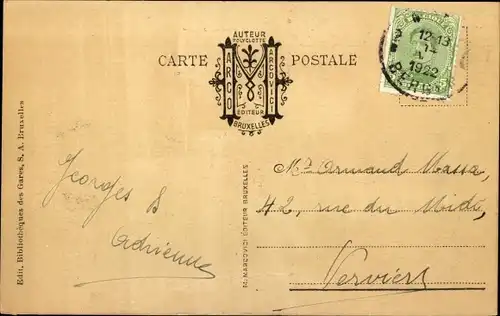 CARTE POSTALE
AUTEUR
POLYGLOTTE
MARCO MARCOVICI
EDITEUR
BRUXELLES
12-13
1922
BERG
Edit. Bibliothèques des Gares, S. A. Bruxelles
M. MARCOVICI EDITEUR BRUXELLES
Georges &
Adrienne
Mr Armand Massa,
42, rue du Midi,
Verviers